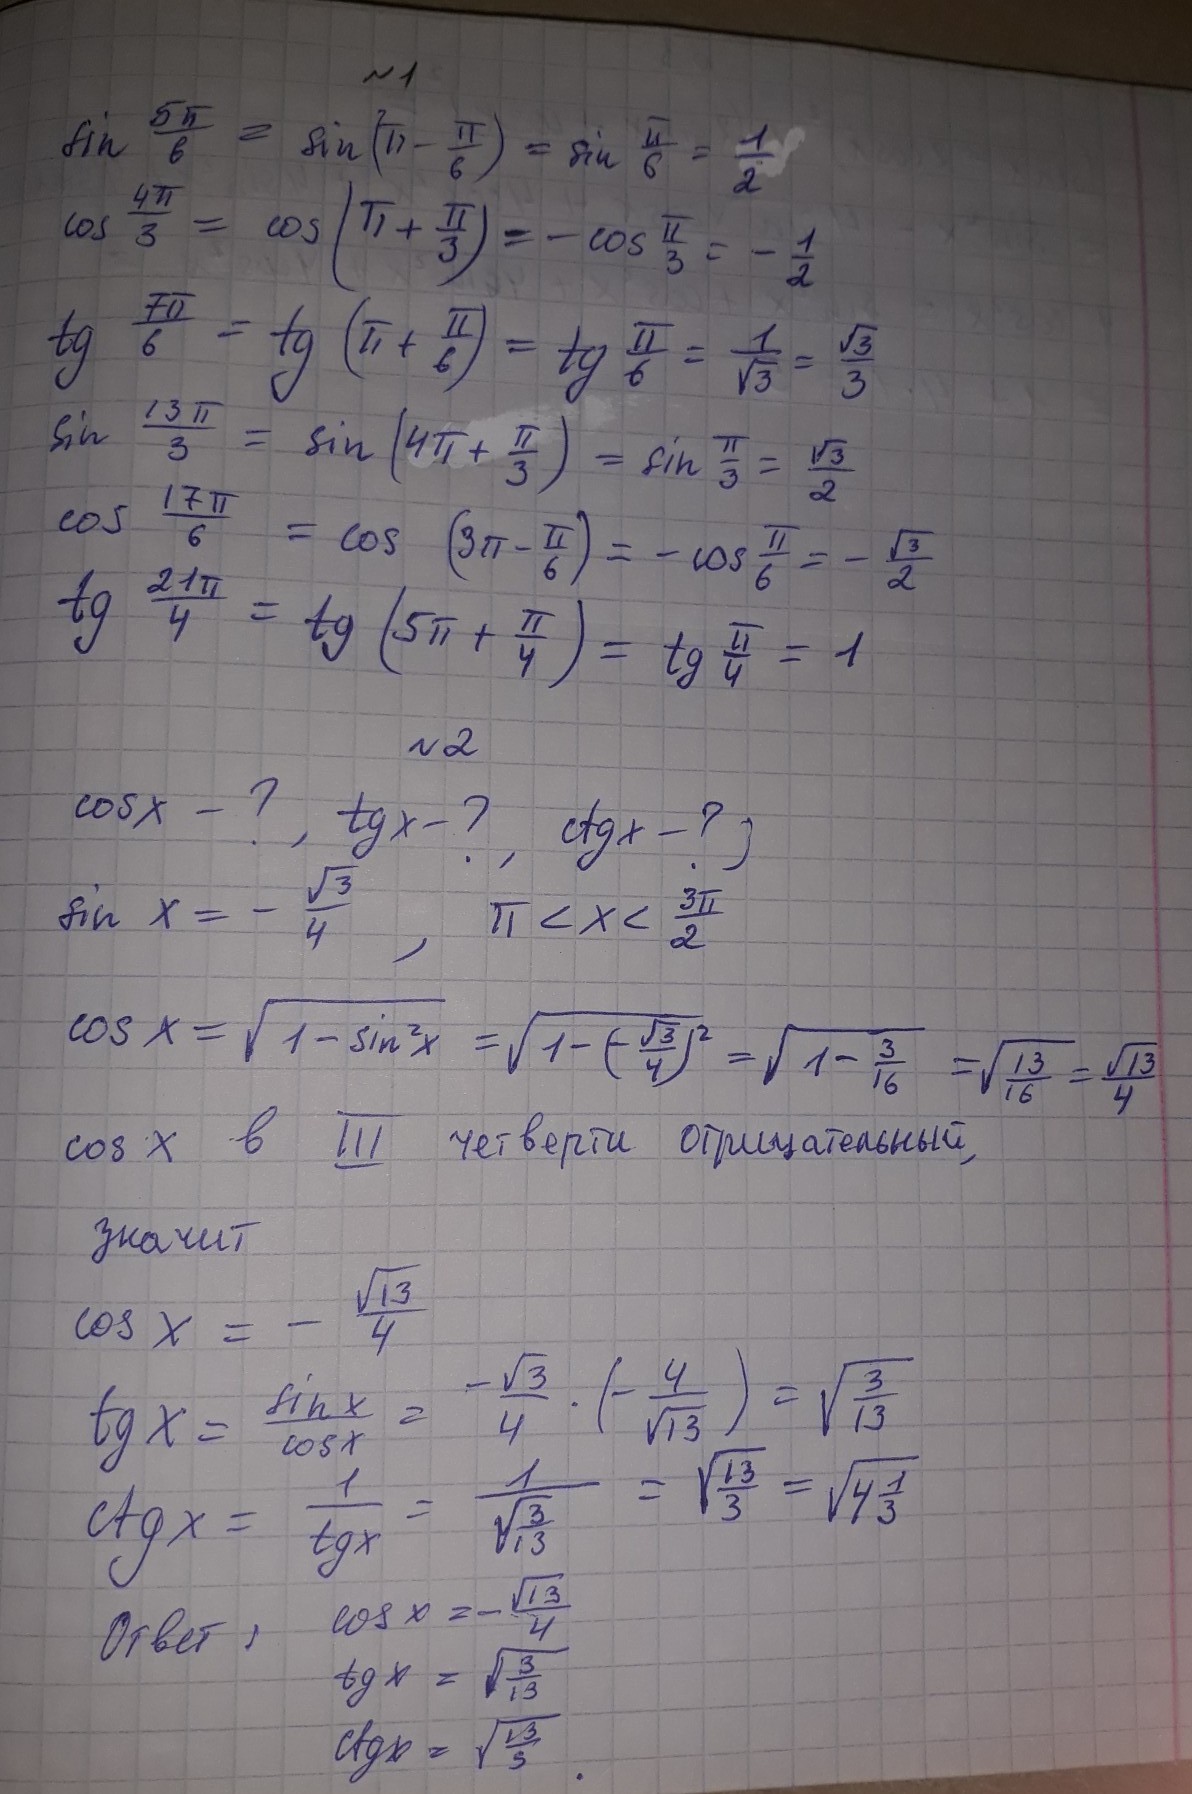 №1
sin 5π/6 = sin(π - π/6) = sin π/6 = 1/2
cos 4π/3 = cos(π + π/3) = -cos π/3 = -1/2
tg 7π/6 = tg(π + π/6) = tg π/6 = 1/√3 = √3/3
sin 13π/3 = sin(4π + π/3) = sin π/3 = √3/2
cos 17π/6 = cos(3π - π/6) = -cos π/6 = -√3/2
tg 21π/4 = tg(5π + π/4) = tg π/4 = 1
№2
cosx - ?, tgx - ?, ctgx - ?;
sin x = -√3/4, π < x < 3π/2
cos x = √(1 - sin²x) = √(1 - (-√3/4)²) = √(1 - 3/16) = √(13/16) = √13/4
cos x в III четверти отрицательный,
значит
cos x = -√13/4
tg x = sin x/cos x = -√3/4 · (-4/√13) = √(3/13)
ctg x = 1/tgx = 1/√(3/13) = √(13/3) = √(4 1/3)
Ответ: cos x = -√13/4
tg x = √(3/13)
ctgx = √(13/3).